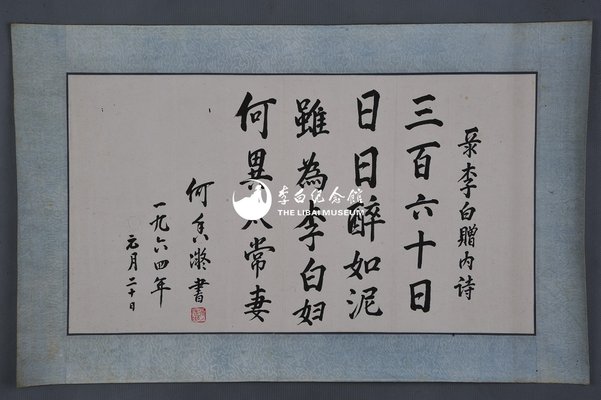 录李白赠内诗
三百六十日
日日醉如泥
雖為李白妇
何異太常妻
何香凝書
一九六四年
元月二十日
李白纪念館
THE LIBAI MUSEUM